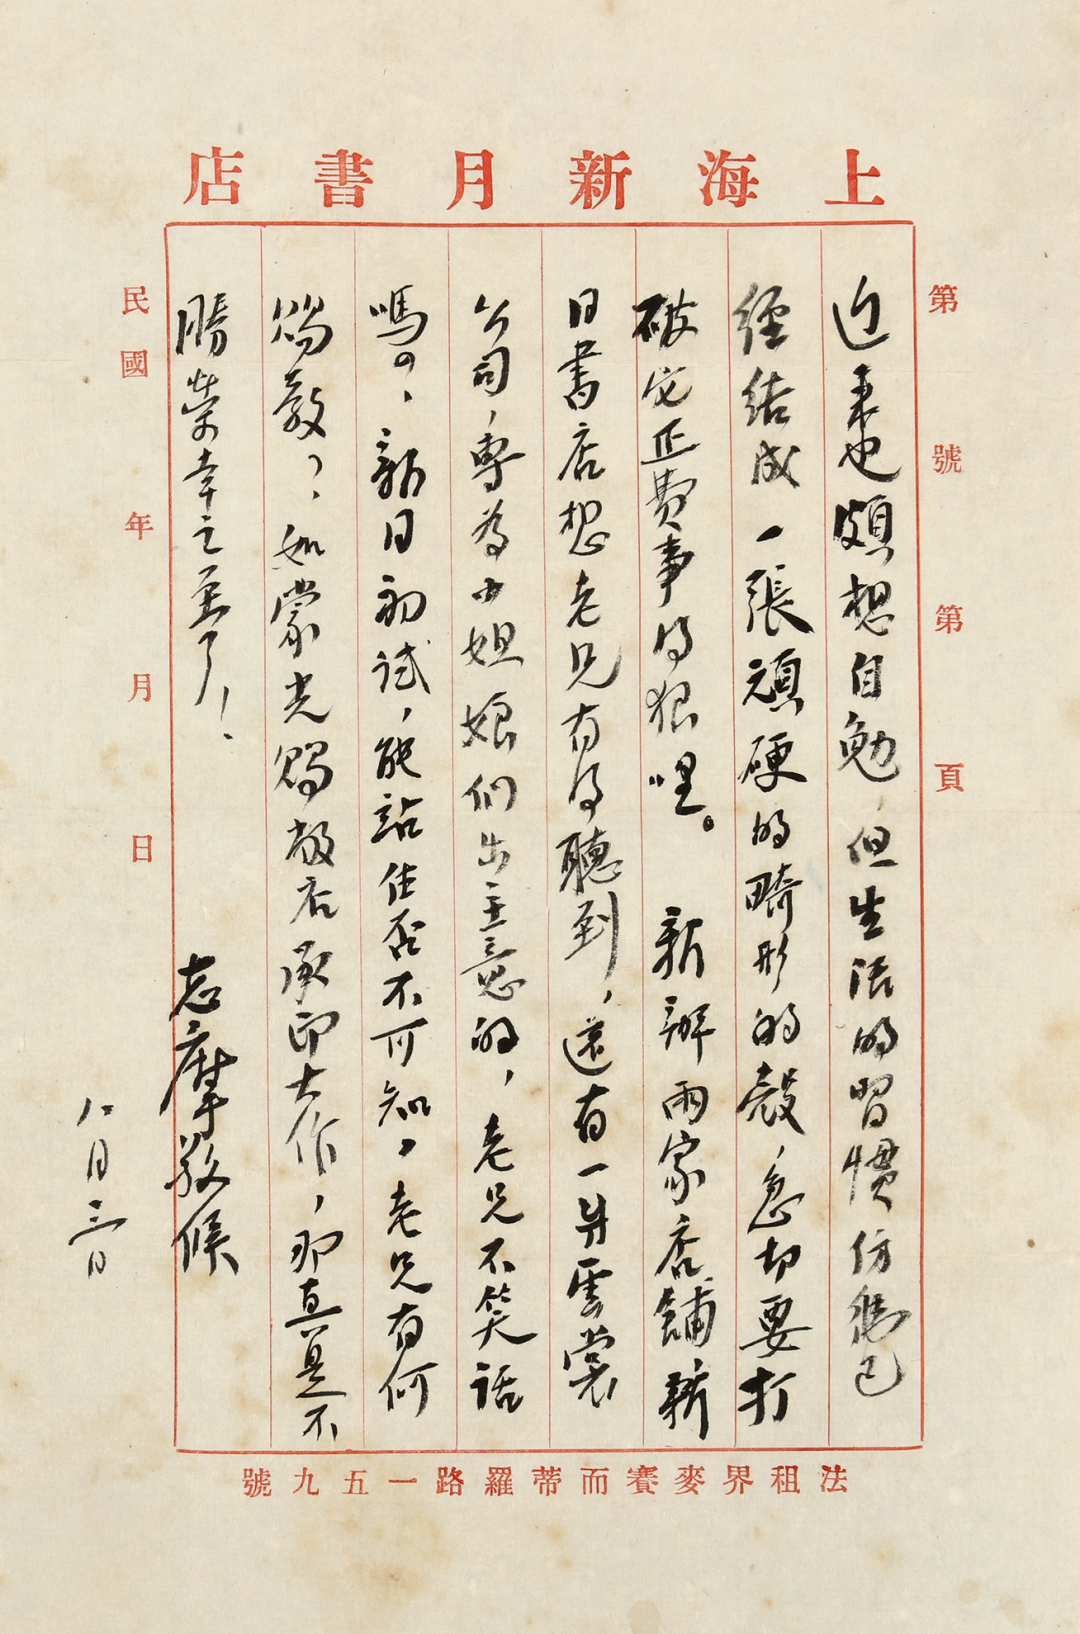 上海新月書店
第 號 第 頁
近來也頗想自勉，但生活的習慣仿彿已
經結成一張頑硬的畸形的殼，急切要打
破它正費事得狠哩。 新辦兩家店鋪新
月書店想老兄有得聽到，還有一爿雲裳
公司，專為小姐娘們出主意的，老兄不笑話
嗎？新月初試，能站住否不可知，老兄有何
賜教？如蒙光賜敝店承印大作，那真是不
勝榮幸之至了！
志摩敬候
八月三日
民國 年 月 日
法租界麥賽而蒂羅路一五九號